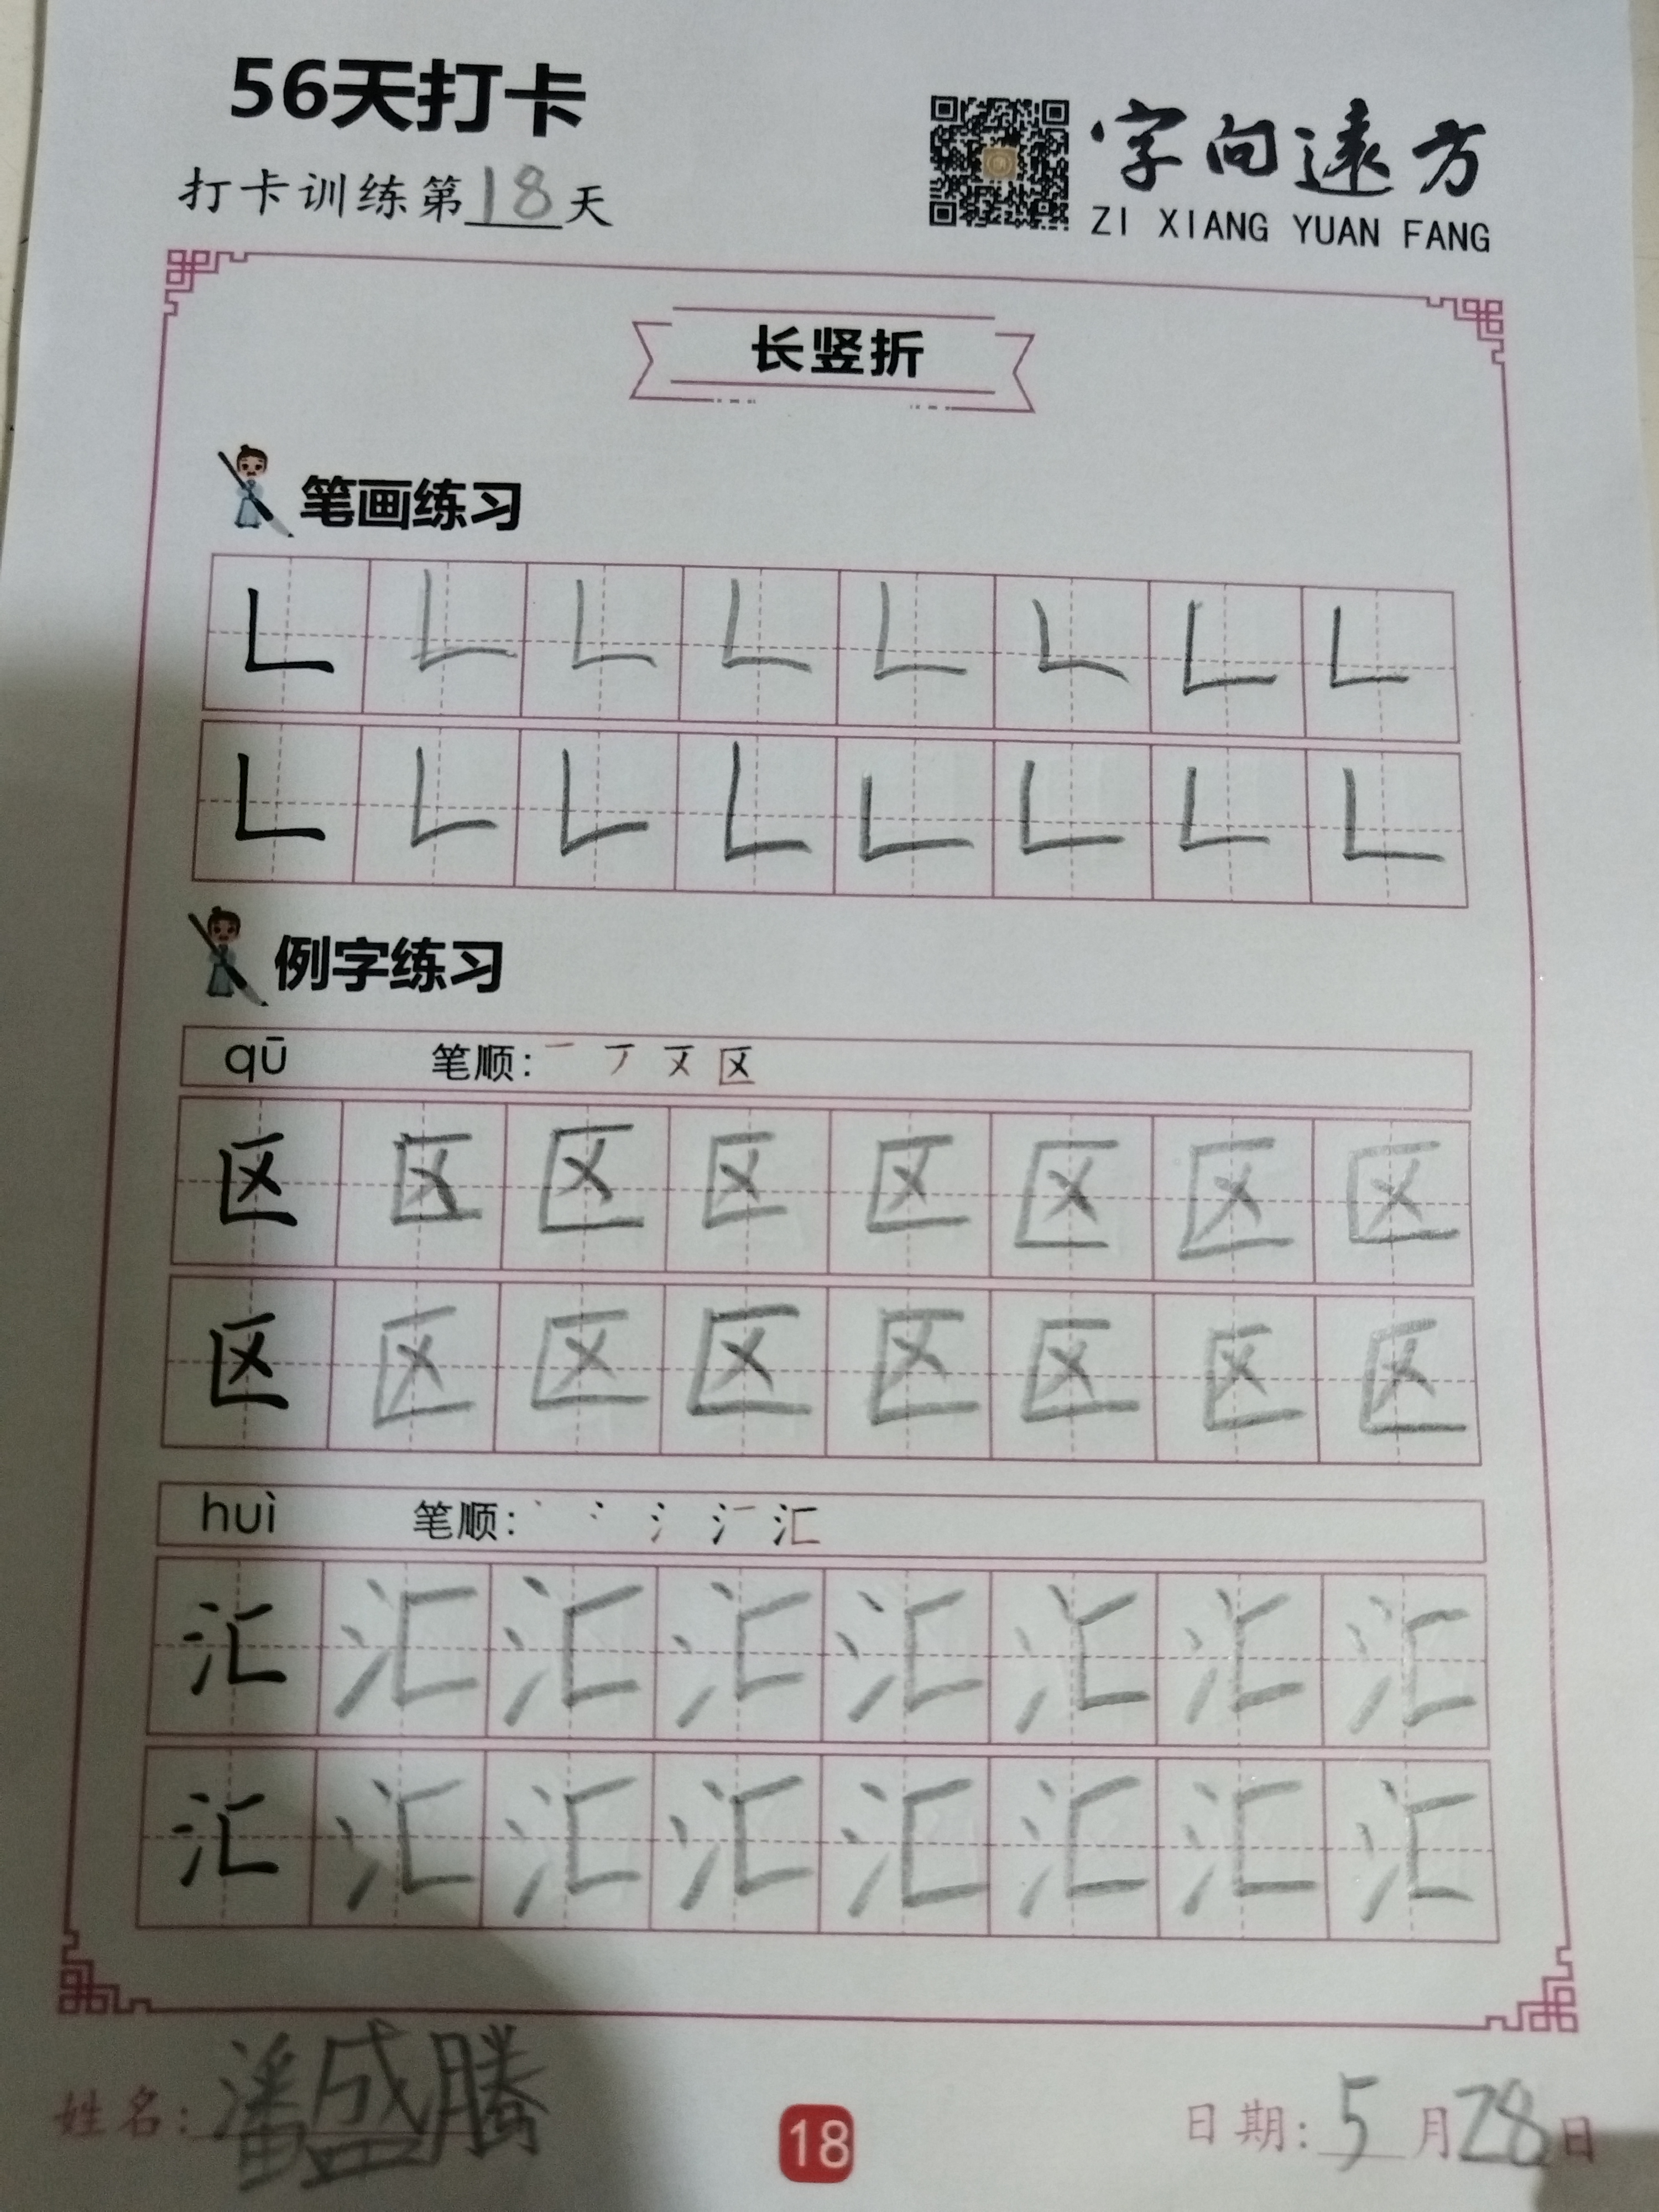 56天打卡
打卡训练第18天
字向遠方
ZI XIANG YUAN FANG
长竖折
笔画练习
𠃊 𠃊 𠃊 𠃊 𠃊 𠃊 𠃊 𠃊
𠃊 𠃊 𠃊 𠃊 𠃊 𠃊 𠃊 𠃊
例字练习
qū 笔顺: 一 丆 区
区 区 区 区 区 区 区 区
区 区 区 区 区 区 区 区
huì 笔顺: 丶 冫 氵 汇
汇 汇 汇 汇 汇 汇 汇 汇
汇 汇 汇 汇 汇 汇 汇 汇
姓名: 潘盛腾
18
日期: 5月28日